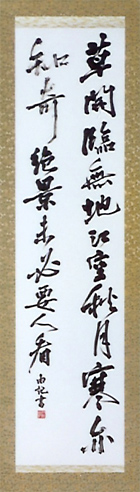 草閣臨無地江空秋月寒亦
知奇絶景未必要人看